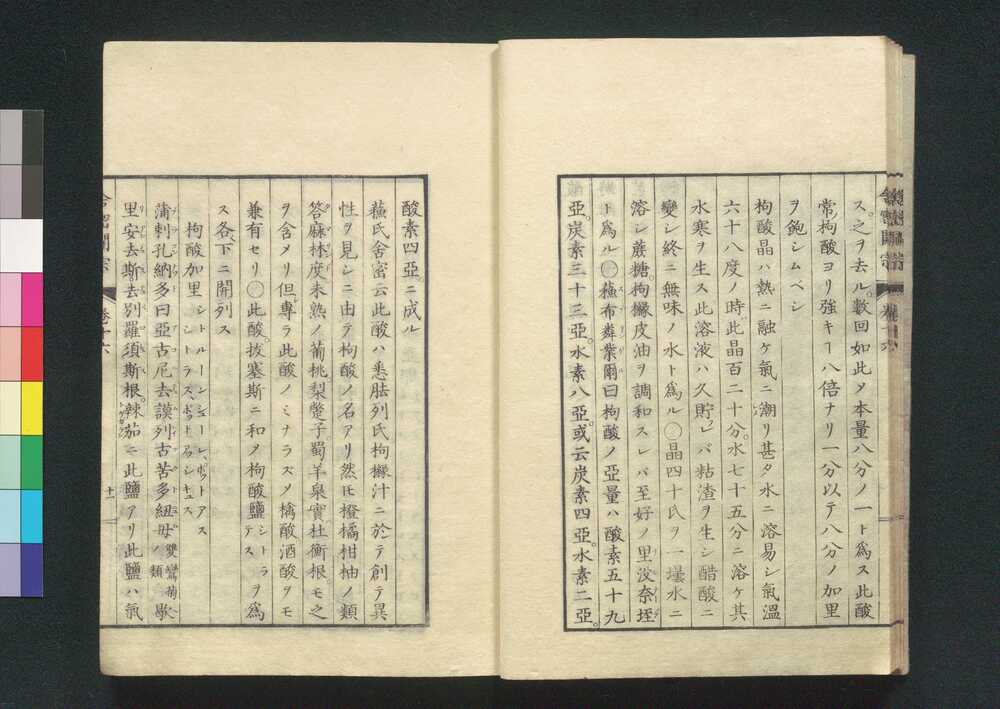 ス。之ヲ去ル。數回如此メ本量八分ノ一ト爲ス此酸
常枸酸ヨリ強キヿ八倍ナリ一分以テ八分ノ加里
ヲ飽シムベシ
枸酸晶ハ熱ニ融ケ氣ニ潮リ甚タ水ニ溶易シ氣溫
六十八度ノ時此晶百二十分。水七十五分ニ溶ケ其
水寒ヲ生ス此溶液ハ久貯レバ粘渣ヲ生シ醋酸ニ
變シ終ニ無味ノ水ト爲ル〇晶四十氏ヲ一壜水ニ
溶シ蔗糖。枸櫞皮油ヲ調和スレバ至好ノ里没奈垤
ト爲ル〇蘓布葬業爾曰枸酸ノ亞量ハ酸素五十九
亞。炭素三十三亞。水素八亞。或云炭素四亞。水素二亞。
酸素四亞。ニ成ル
蘓氏舍密云此酸ハ悉勝列氏枸櫞汁ニ於テ創テ異
性ヲ見シニ由テ枸酸ノ名アリ然𪜈橙橘柑柚ノ類
答麻林度未熟ノ葡桃梨蹩子蜀羊泉實杜衡根モ之
ヲ含メリ但專ラ此酸ノミナラズメ檎酸酒酸ヲモ
兼有セリ〇此酸。拔塞斯ニ和メ枸酸鹽シトラテスヲ爲
ス各下ニ開列ス
枸酸加里 シトルーンシューレ、ポットアス シトラス、ポットアッシキュス
蒲剌孔納多曰亞古尼去謨列古苦多紐母雙鸞菊ノ類歇
里安去斯去別羅須斯根。辣茄ニ此鹽アリ此鹽ハ氣
舍密開宗
卷十六
十一